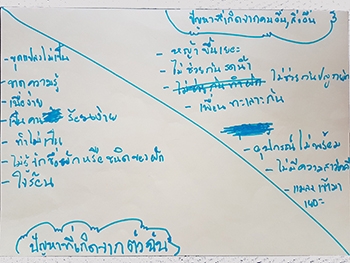 ปัญหาที่เกิดจากคนอื่น,สิ่งอื่น 3
- หญ้าขึ้นเยอะ
- ไม่ช่วยกันรดน้ำ
- ไม่ช่วยกันปลูกผัก
- เพื่อนทะเลาะกัน
- อุปกรณ์ไม่พร้อม
- ไม่มีความสามัคคี
- แมลงเข้ามา
เยอะ
- ขุดแปลงไม่เป็น
- ขาดความรู้
- เบื่อง่าย
- เป็นคน ร้อนง่าย
- ทำไม่เป็น
- ไม่รู้จักชื่อผักหรือชนิดของผัก
- ใจร้อน
ปัญหาที่เกิดจากตัวฉัน